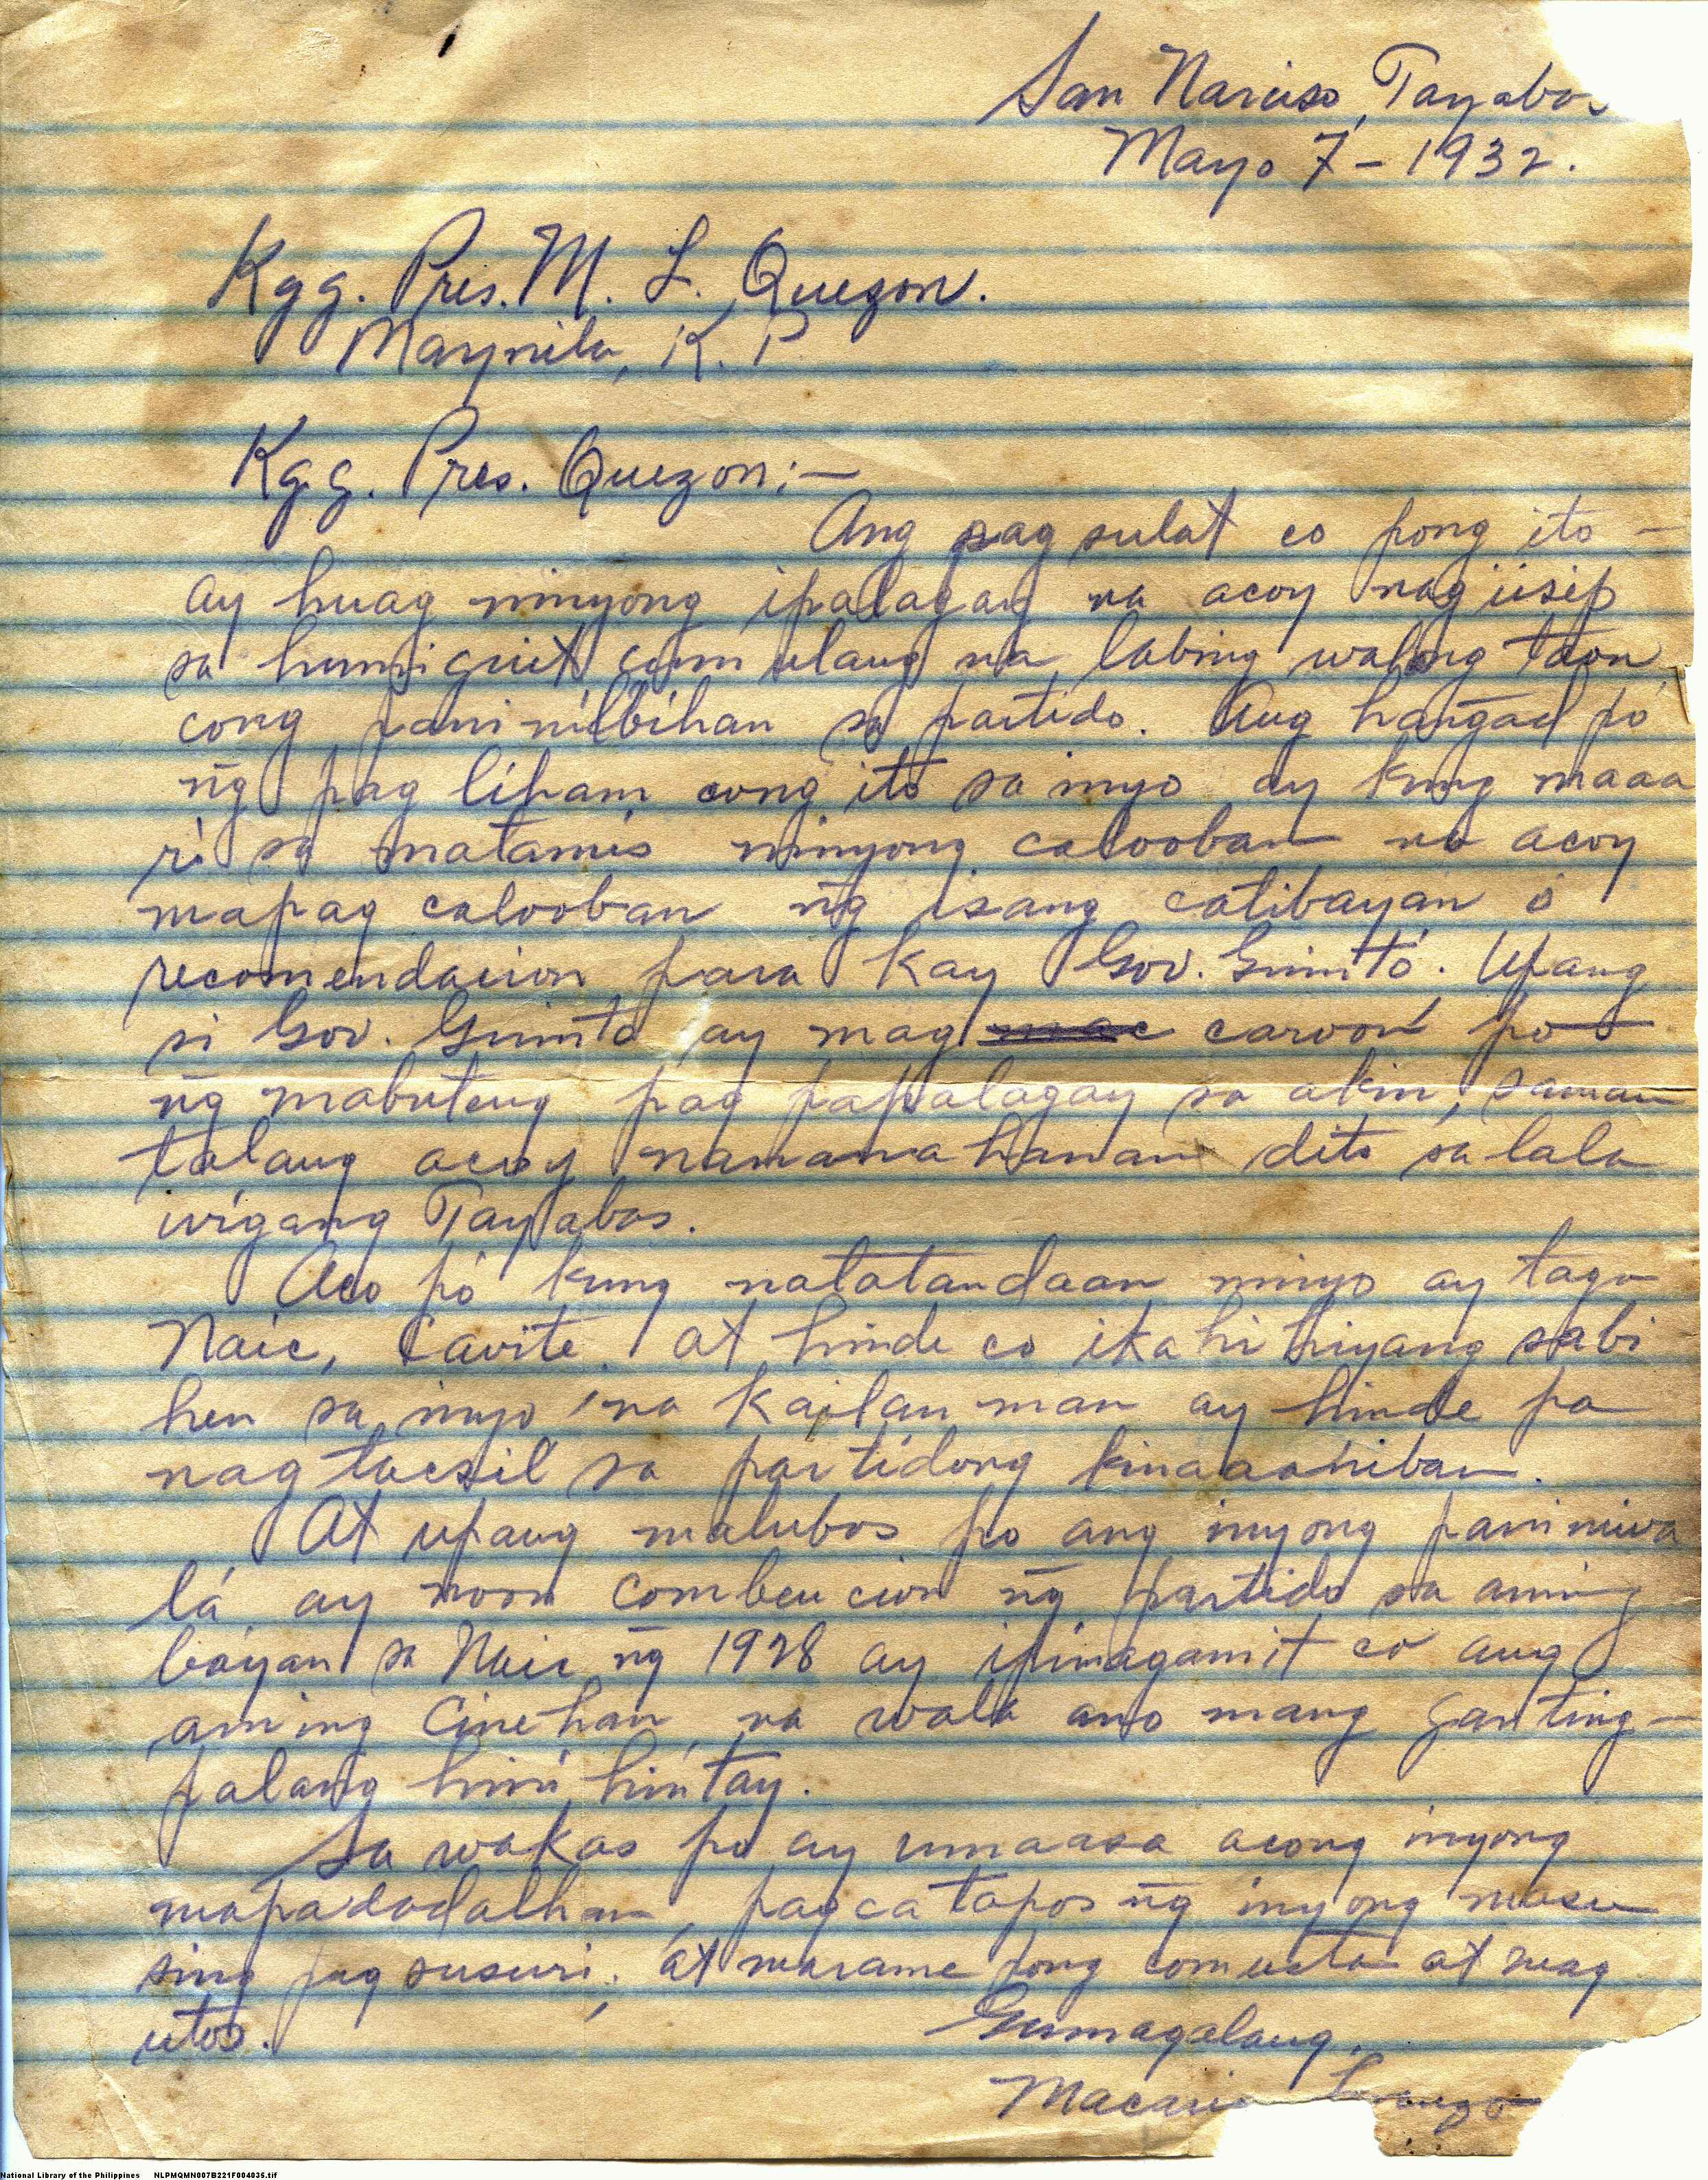 San Narciso, Tayabas
Mayo 7 - 1932.
Kgg. Pres. M. L. Quezon.
Maynila, K. P.
Kgg. Pres. Quezon:-
Ang pag sulat co pong ito -
ay huag ninyong ipalagay na acoy nagiisip
sa humiguit cum ulang na labing walong taon
cong paninilbihan sa partido. Ang hangad po
ng̃ pag liham cong ito sa inyo ay kung maaa
ri sa matamis ninyong calooban na acoy
mapag calooban ng̃ isang catibayan ó
recomendacion para kay Gov. Guinto. Upang
si Gov. Guinto ay mag caroon po
ng̃ mabuteng pag papalagay sa akin, saman
talang acoy namamahanan dito sa lala
wigang Tayabas.
Aco po kung natatandaan ninyo ay taga
Naic, Cavite. at hinde co ikahihiyang sabi
hen sa inyo na kailan man ay hinde pa
nagtacsil sa partidong kinaaaniban.
At upang malubos po ang inyong paniniwa
lá ay noon combencion ng̃ partido sa aming
bayan sa Naic ng̃ 1928 ay ipinagamit co ang
aming Cinehan, na wala ano mang ganting-
palang hini hintay.
Sa wakas po ay umaasa acong inyong
mapadadalhan, pagcatapos ng̃ inyong masu
sing pag susuri. at marame pong comusta at mag
utos.
Gumagalang,
Macario
National Library of the Philippines NLPMQMN007B221F004035.tif